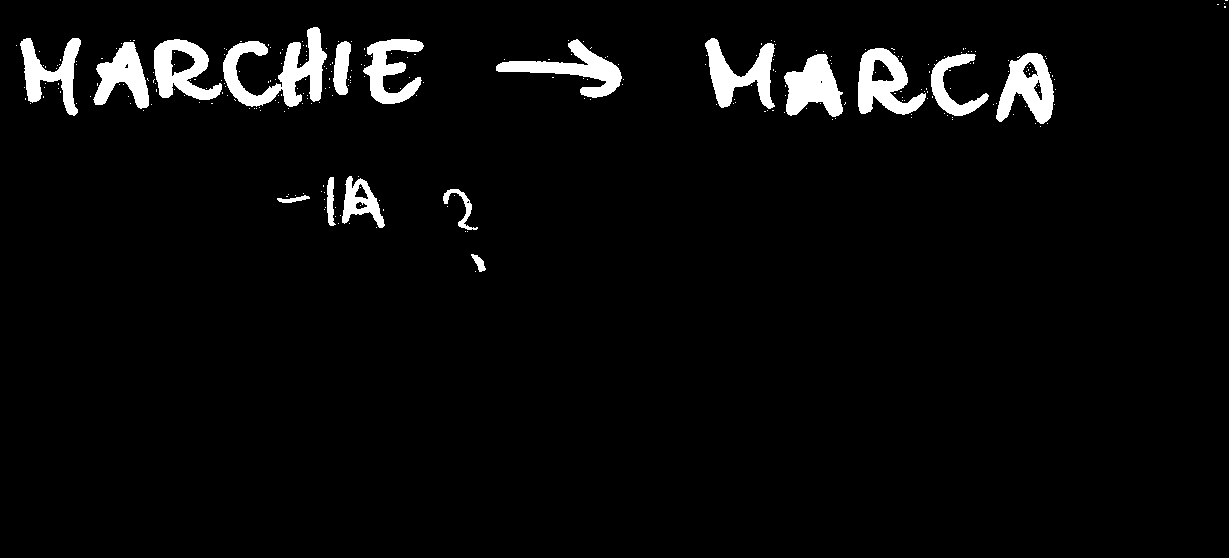 MARCHIE → MARCA
-IA ?